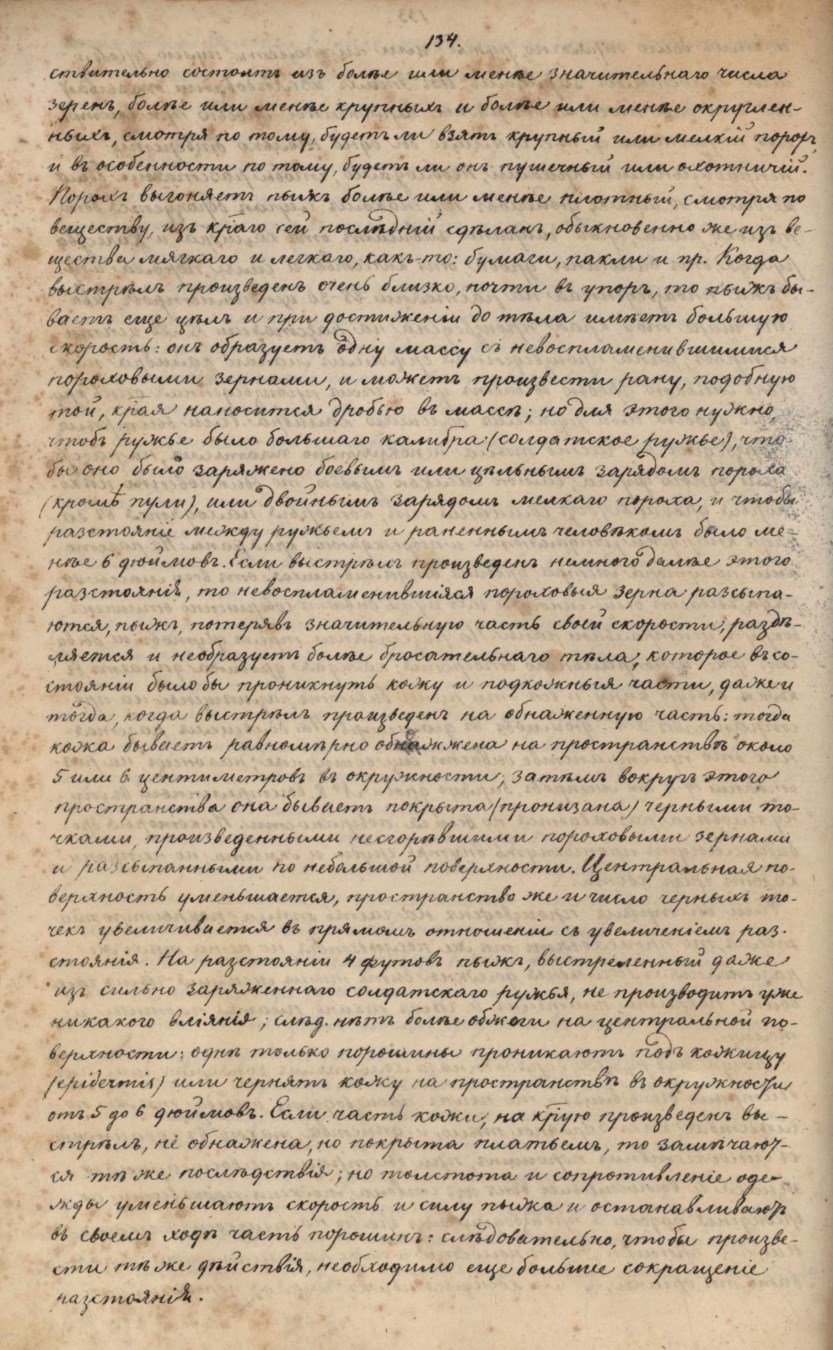 134.
ствительно состоитъ изъ болѣе или менѣе значительнаго числа
зеренъ, болѣе или менѣе крупныхъ и болѣе или менѣе округлен-
ныхъ, смотря по тому, будетъ ли взятъ крупный или мелкій порохъ
и въ особенности по тому, будетъ ли онъ пушечный или охотничій.
Порохъ выгоняетъ пыжъ болѣе или менѣе плотный, смотря по
веществу, изъ кřаго сей послѣдній сдѣланъ, обыкновенно же изъ ве-
щества мягкаго и легкаго, какъ-то: бумаги, пакли и пр. Когда
выстрѣлъ произведенъ очень близко, почти въ упоръ, то пыжъ бы-
ваетъ еще цѣлъ и при достиженіи до тѣла имѣетъ большую
скорость: онъ образуетъ одну массу съ невоспламенившимися
пороховыми зернами, и можетъ произвести рану, подобную
той, края наносится дробью въ массѣ; но для этого нужно,
чтобъ ружье было большаго калибра (солдатское ружье), что
бы оно было заряжено боевымъ или цѣльнымъ зарядомъ пороха
(кромѣ пули), или двойнымъ зарядомъ мелкаго пороха, и чтобы
разстояніе между ружьемъ и раненнымъ человѣкомъ было ме-
нѣе 6 дюймовъ. Если выстрѣлъ произведенъ немного далѣе этого
разстоянія, то невоспламенившіяся пороховыя зерна разсыпа-
ются, пыжъ, потерявъ значительную часть своей скорости, раздѣ-
ляется и необразуетъ болѣе бросательнаго тѣла, которое въ со-
стояніи было бы проникнуть кожу и подкожныя части, даже и
тогда, когда выстрѣлъ произведенъ на обнаженную часть: тогда
кожа бываетъ равномѣрно обнажжена на пространствѣ около
5 или 6 центиметровъ въ окружности, затѣмъ вокругъ этого
пространства она бываетъ покрыта (пронизана) черными то-
чками, произведенными несгорѣвшими пороховыми зернами
и разсыпанными по небольшой поверхности. Центральная по-
верхность уменьшается, пространство же и число черныхъ то-
чекъ увеличивается въ прямомъ отношеніи съ увеличеніемъ раз-
стоянія. На разстояніи 4 футовъ пыжъ, выстреленный даже
изъ сильно заряженнаго солдатскаго ружья, не производитъ уже
никакого вліянія; слѣд. нѣтъ болѣе обжоги на центральной по-
верхности: однѣ только порошины проникаютъ подъ кожицу
(epidermis) или чернятъ кожу на пространствѣ въ окружности
отъ 5 до 6 дюймовъ. Если часть кожи, на крую произведенъ вы-
стрѣлъ, не обнажена, но покрыта платьемъ, то замѣчают-
ся тѣ же послѣдствія; но толстота и сопротивленіе оде-
жды уменьшаютъ скорость и силу пыжа и останавливаютъ
въ своемъ ходѣ часть порошинъ: слѣдовательно, чтобы произве-
сти тѣ же дѣйствія, необходимо еще большее сокращеніе
разстоянія.